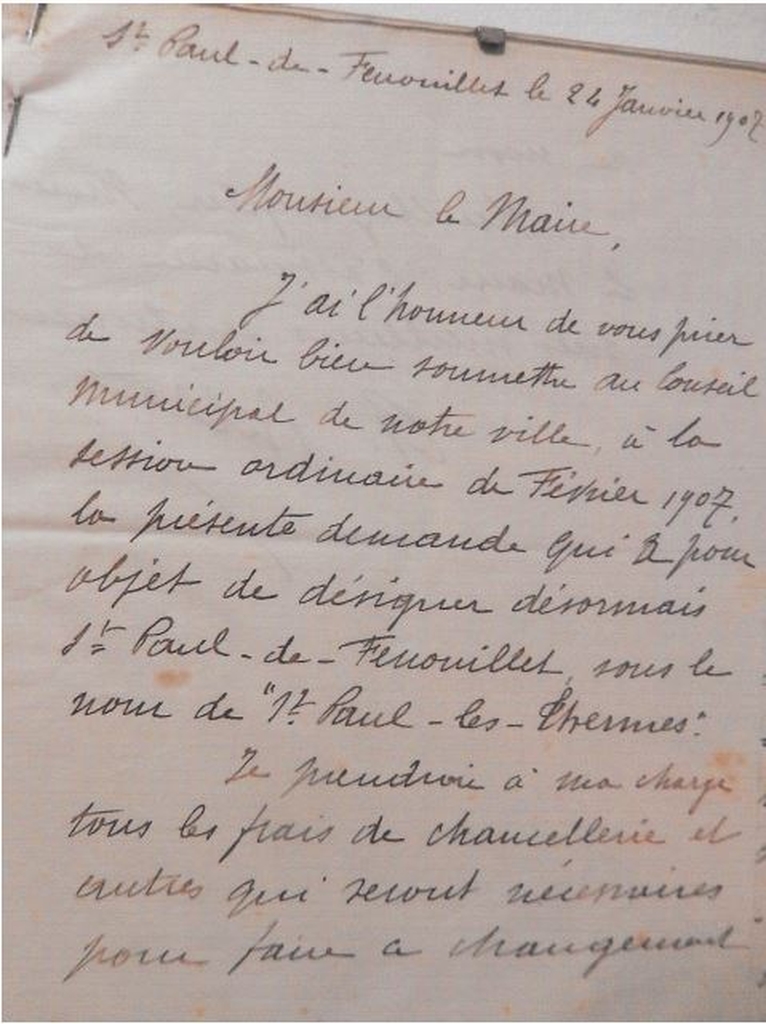 St Paul-de-Fenouillet le 24 Janvier 1907
Monsieur le Maire,
J'ai l'honneur de vous prier
de vouloir bien soumettre au Conseil
Municipal de notre ville, à la
session ordinaire de Février 1907,
la présente demande qui a pour
objet de désigner désormais
St Paul-de-Fenouillet, sous le
nom de "St Paul-les-Thermes".
Je prendrai à ma charge
tous les frais de chancellerie et
autres qui seront nécessaires
pour faire ce changement